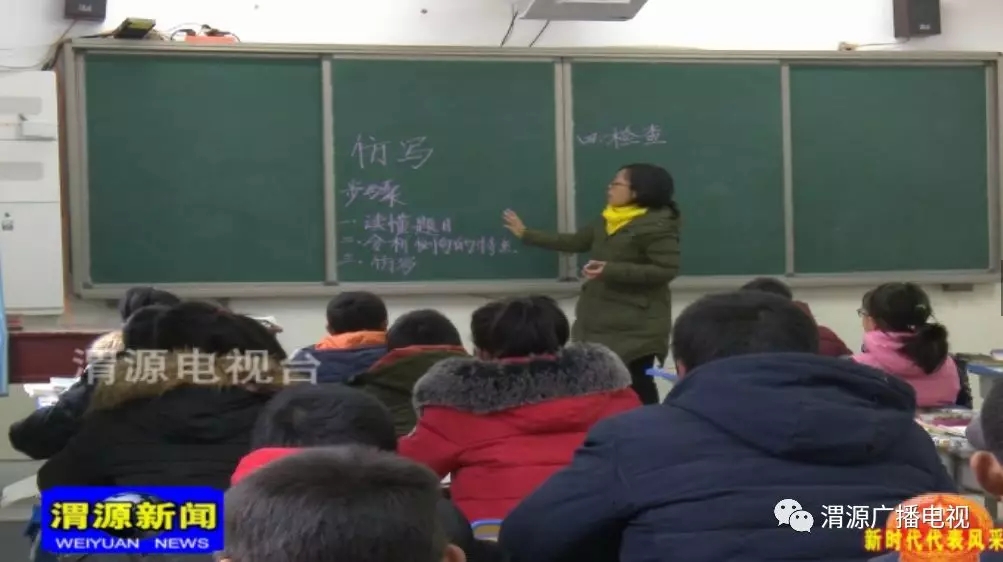 仿写
四、检查
步骤
一、读懂题目
二、分析例句的特点
三、仿写
渭源电视台
渭源新闻
WEIYUAN NEWS
渭源广播电视
新时代代表风采